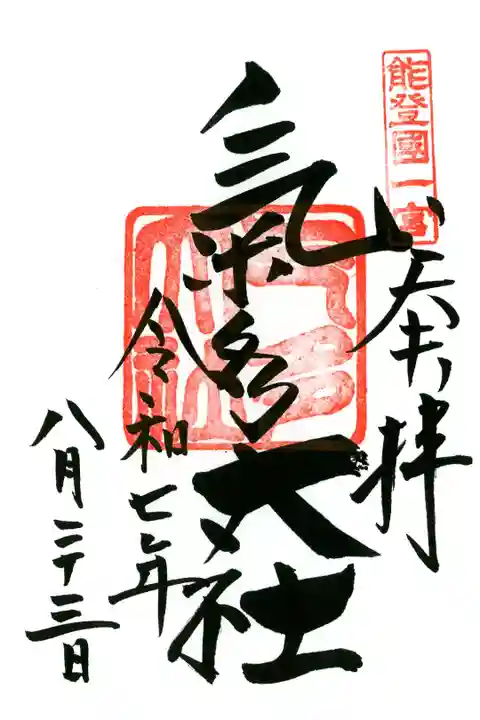 能登國一宮
奉拝
氣多大社
氣多大社
令和七年
八月二十三日